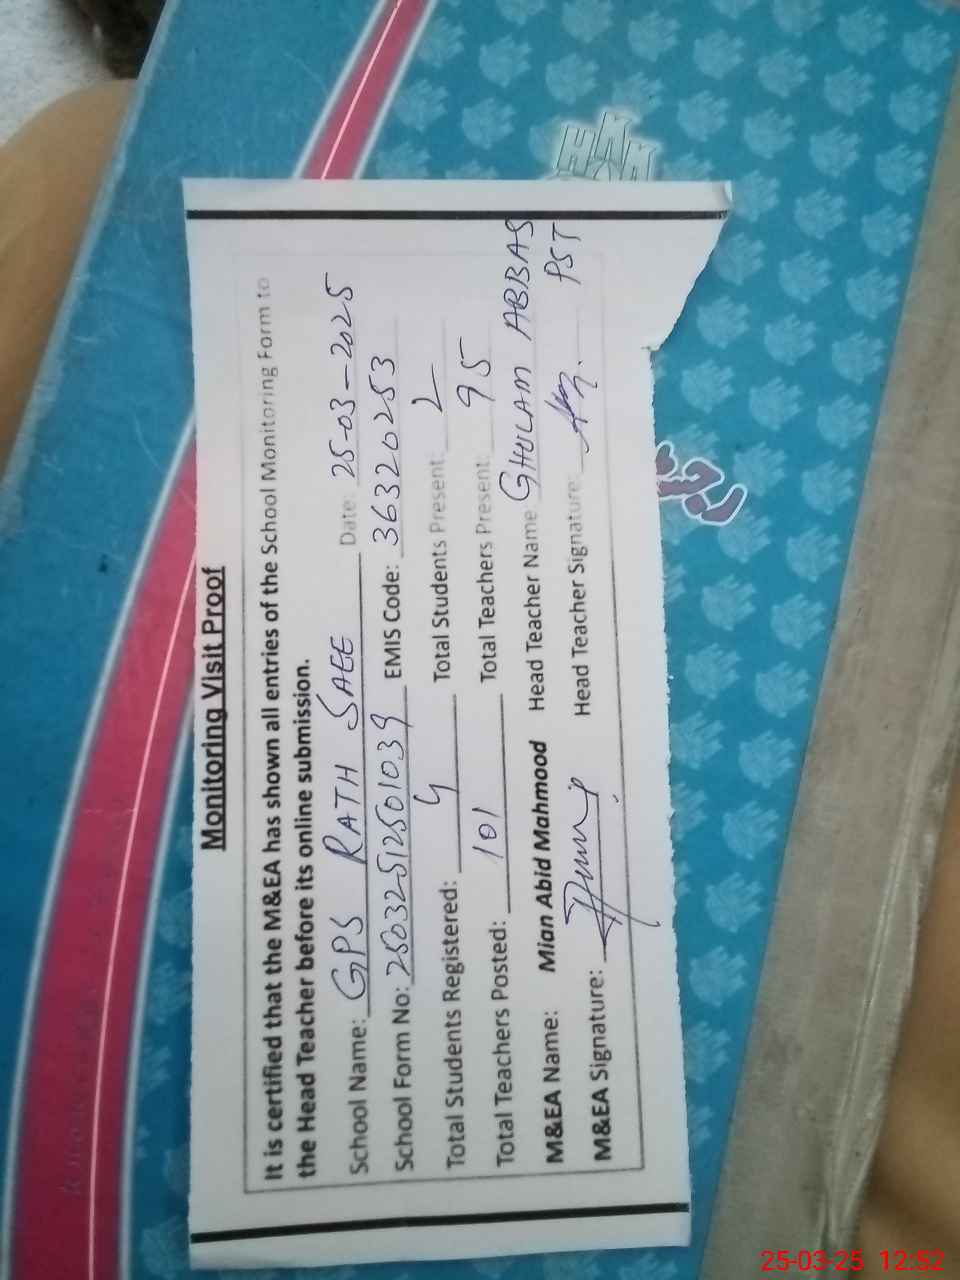 Monitoring Visit Proof
It is certified that the M&EA has shown all entries of the School Monitoring Form to
the Head Teacher before its online submission.
School Name: GPS RATH SAEE Date: 25-03-2025
School Form No: 25032512501039 EMIS Code: 36320253
Total Students Registered: 4 Total Students Present: 2
Total Teachers Posted: 101 Total Teachers Present: 95
M&EA Name: Mian Abid Mahmood Head Teacher Name: GHULAM ABBAS
M&EA Signature: Head Teacher Signature: PST
25-03-25 12:52